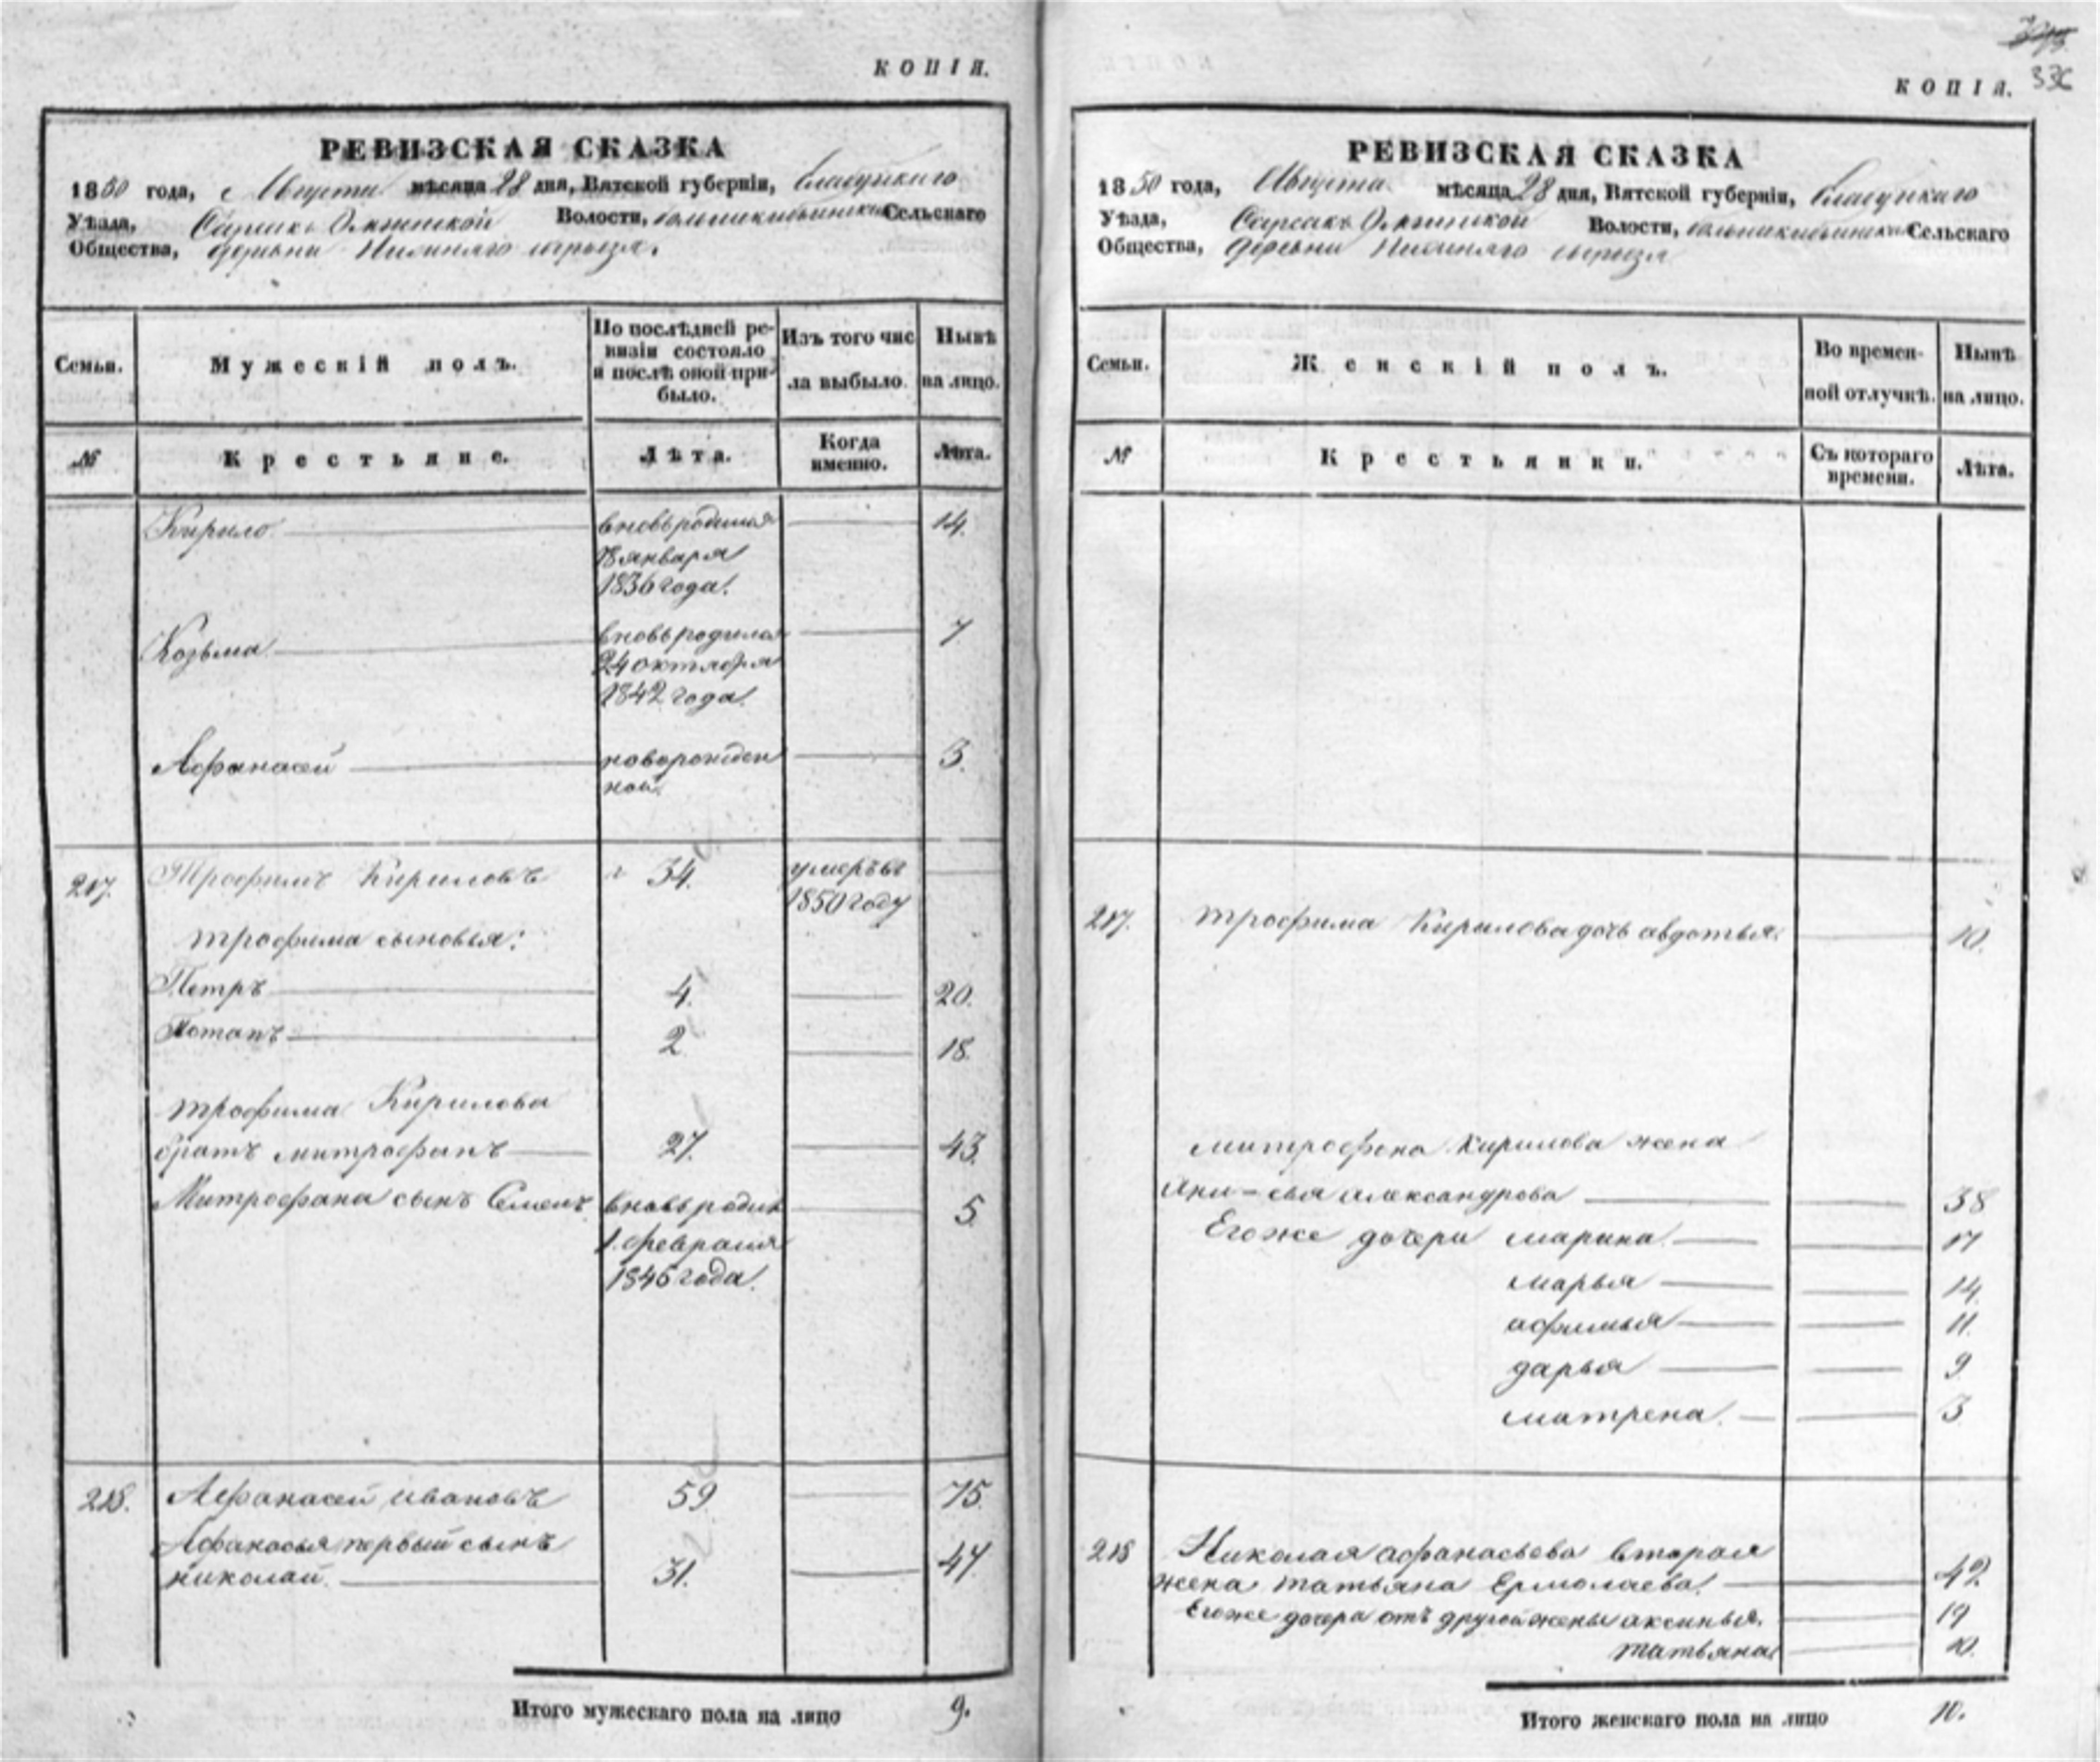 КОПІЯ.
РЕВИЗСКАЯ СКАЗКА
1850 года, Августа мѣсяца 28 дня, Вятской губерніи, Елабужскаго
Уѣзда, Сарсакъ Омгинской Волости, Сельскаго
Общества, деревни Нижняго
Семьи.
Мужескій полъ.
По послѣдней ре-
визіи состояло
и послѣ оной при-
было.
Изъ того чис
ла выбыло.
Нынѣ
на лицо.
№
Крестьяне.
Лѣта.
Когда
именно.
Лѣта.
Кирило вновь родился 14.
18 января
1836 года.
Козьма вновь родился 7
24 октября
1842 года.
Афанасей новорожден 3.
ной.
217. Трофимъ Кириловъ 34. умеръ въ
1850 году
трофима сыновья:
Петръ 4. 20.
Потапъ 2 18.
трофима Кирилова
братъ митрофанъ 27. 43.
Митрофана сынъ Семенъ вновь родил 5.
1 февраля
1845 года.
218. Афанасей ивановъ 59 75.
Афанасья первый сынъ
николай. 31. 47
Итого мужескаго пола на лицо 9.
КОПІЯ.
РЕВИЗСКАЯ СКАЗКА
1850 года, Августа мѣсяца 28 дня, Вятской губерніи, Елабужскаго
Уѣзда, Сарсакъ Омгинской Волости, Сельскаго
Общества, деревни Нижняго
Семьи.
Женскій полъ.
Во времен-
ной отлучкѣ.
Нынѣ
на лицо.
№
Крестьянки.
Съ котораго
времени.
Лѣта.
217. трофима Кирилова дочь авдотья. 10.
митрофана Кирилова жена
Ани=сья александрова 38
Егоже дочери марина 17
марья 14
афимья 11.
дарья 9
матрена. 3
218 Николая афанасьева вторая
жена татьяна Ермолаева. 42
Егоже дочери отъ другой жены аксинья. 19
татьяна 10.
Итого женскаго пола на лицо 10.